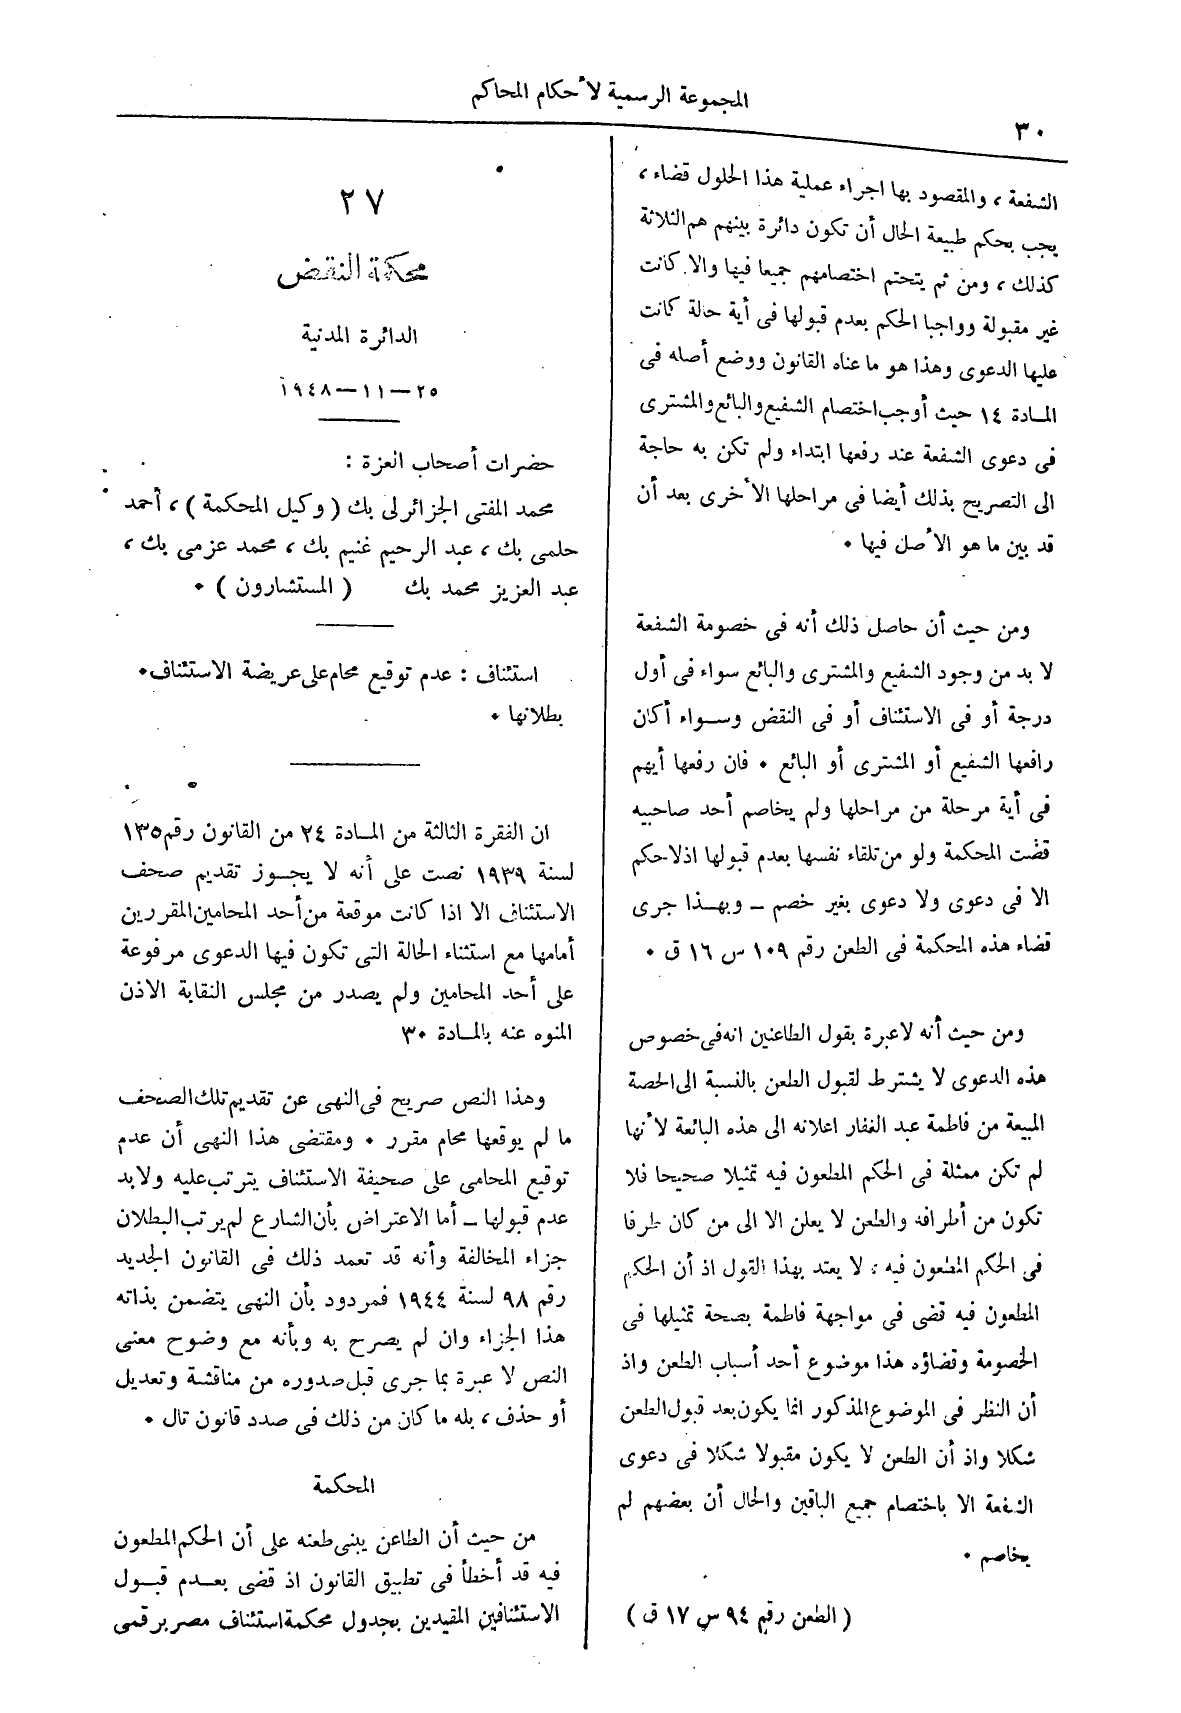 المجموعة الرسمية لأحكام المحاكم
٣٠
الشفعة ، والمقصود بها اجراء عملية هذا الحلول قضاء ،
يجب بحكم طبيعة الحال أن تكون دائرة بينهم هم الثلاثة
كذلك ، ومن ثم يتحتم اختصامهم جميعا فيها والا كانت
غير مقبولة وواجبا الحكم بعدم قبولها فى أية حالة كانت
عليها الدعوى وهذا هو ما عناه القانون ووضع أصله فى
المادة ١٤ حيث أوجب اختصام الشفيع والبائع والمشترى
فى دعوى الشفعة عند رفعها ابتداء ولم تكن به حاجة
الى التصريح بذلك أيضا فى مراحلها الأخرى بعد أن
قد بين ما هو الأصل فيها .
ومن حيث أن حاصل ذلك أنه فى خصومة الشفعة
لا بد من وجود الشفيع والمشترى والبائع سواء فى أول
درجة أو فى الاستئناف أو فى النقض وسواء أكان
رافعها الشفيع أو المشترى أو البائع . فان رفعها أيهم
فى أية مرحلة من مراحلها ولم يخاصم أحد صاحبيه
قضت المحكمة ولو من تلقاء نفسها بعدم قبولها اذ لا حكم
الا فى دعوى ولا دعوى بغير خصم ــ وبهذا جرى
قضاء هذه المحكمة فى الطعن رقم ١٠٩ س ١٦ ق .
ومن حيث أنه لا عبرة بقول الطاعنين انه فى خصوص
هذه الدعوى لا يشترط لقبول الطعن بالنسبة الى الحصة
المبيعة من فاطمة عبد الغفار اعلانه الى هذه البائعة لأنها
لم تكن ممثلة فى الحكم المطعون فيه تمثيلا صحيحا فلا
تكون من أطرافه والطعن لا يعلن الا الى من كان طرفا
فى الحكم المطعون فيه ، لا يعتد بهذا القول اذ أن الحكم
المطعون فيه قضى فى مواجهة فاطمة بصحة تمثيلها فى
الخصومة وقضاؤه هذا موضوع أحد أسباب الطعن واذ
أن النظر فى الموضوع المذكور انما يكون بعد قبول الطعن
شكلا واذ أن الطعن لا يكون مقبولا شكلا فى دعوى
الشفعة الا باختصام جميع الباقين والحال أن بعضهم لم
يخاصم .
( الطعن رقم ٩٤ س ١٧ ق )
٢٧
محكمة النقض
الدائرة المدنية
٢٥ــ١١ــ١٩٤٨
حضرات أصحاب العزة :
محمد المفتى الجزائرلى بك ( وكيل المحكمة ) ، أحمد
حلمى بك ، عبد الرحيم غنيم بك ، محمد عزمى بك ،
عبد العزيز محمد بك ( المستشارون ) .
استئناف : عدم توقيع محام على عريضة الاستئناف .
بطلانها .
ان الفقرة الثالثة من المادة ٢٤ من القانون رقم ١٣٥
لسنة ١٩٣٩ نصت على أنه لا يجوز تقديم صحف
الاستئناف الا اذا كانت موقعة من أحد المحامين المقررين
أمامها مع استثناء الحالة التى تكون فيها الدعوى مرفوعة
على أحد المحامين ولم يصدر من مجلس النقابة الاذن
المنوه عنه بالمادة ٣٠
وهذا النص صريح فى النهى عن تقديم تلك الصحف
ما لم يوقعها محام مقرر . ومقتضى هذا النهى أن عدم
توقيع المحامى على صحيفة الاستئناف يترتب عليه ولا بد
عدم قبولها ــ أما الاعتراض بأن الشارع لم يرتب البطلان
جزاء المخالفة وأنه قد تعمد ذلك فى القانون الجديد
رقم ٩٨ لسنة ١٩٤٤ فمردود بأن النهى يتضمن بذاته
هذا الجزاء وان لم يصرح به وبأنه مع وضوح معنى
النص لا عبرة بما جرى قبل صدوره من مناقشة وتعديل
أو حذف ، بله ما كان من ذلك فى صدد قانون تال .
المحكمة
من حيث أن الطاعن يبنى طعنه على أن الحكم المطعون
فيه قد أخطأ فى تطبيق القانون اذ قضى بعدم قبول
الاستئنافين المقيدين بجدول محكمة استئناف مصر برقمى